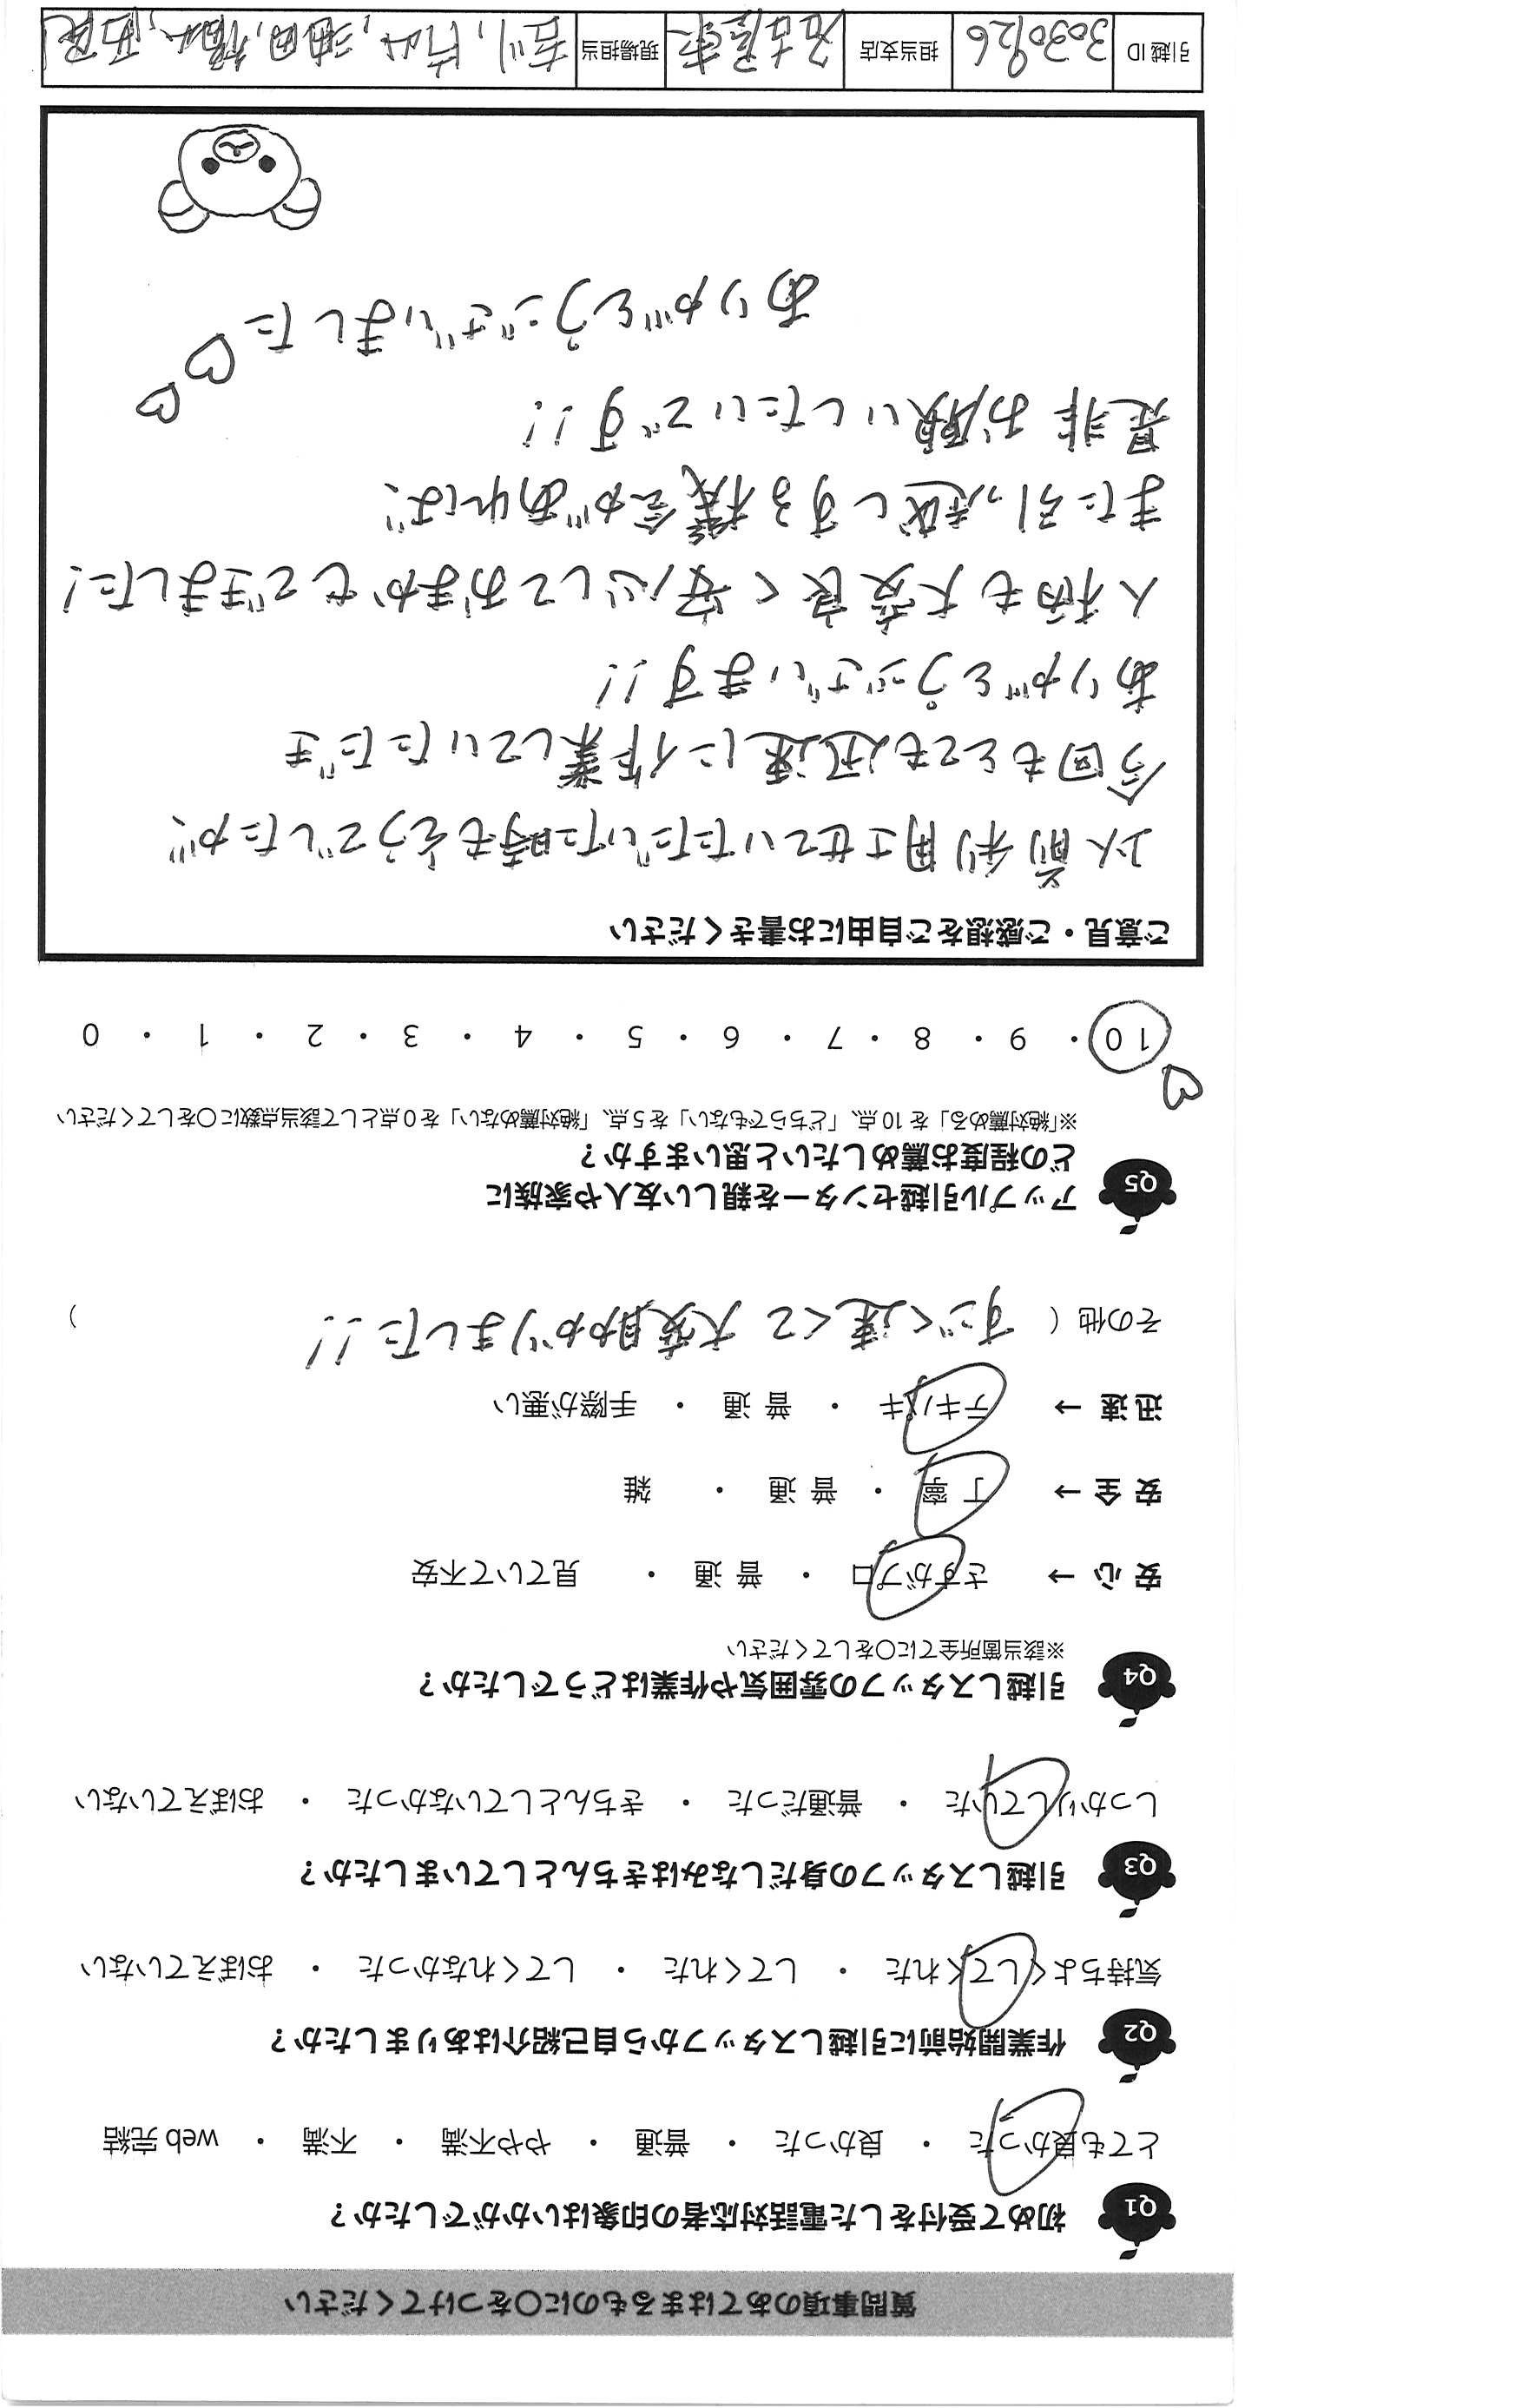 質問事項のあてはまるものに〇をつけてください
Q1 初めて受付をした電話対応者の印象はいかがでしたか？
とても良かった ・ 良かった ・ 普通 ・ やや不満 ・ 不満 ・ web 完結
Q2 作業開始前に引越しスタッフから自己紹介はありましたか？
気持ちよくしてくれた ・ してくれた ・ してくれなかった ・ おぼえていない
Q3 引越しスタッフの身だしなみはきちんとしていましたか？
しっかりしていた ・ 普通だった ・ きちんとしていなかった ・ おぼえていない
Q4 引越しスタッフの雰囲気や作業はどうでしたか？
※該当箇所全てに〇をしてください
安心 → さすがプロ ・ 普通 ・ 見ていて不安
安全 → 丁寧 ・ 普通 ・ 雑
迅速 → テキパキ ・ 普通 ・ 手際が悪い
その他（ すごく速くて 大変助かりました!! ）
Q5 アップル引越センターを親しい友人や家族に
どの程度お薦めしたいと思いますか？
※「絶対薦める」を 10 点、「どちらでもない」を 5 点、「絶対薦めない」を 0 点として該当点数に〇をしてください
10 ・ 9 ・ 8 ・ 7 ・ 6 ・ 5 ・ 4 ・ 3 ・ 2 ・ 1 ・ 0
ご意見・ご感想をご自由にお書きください
以前利用させていただいた時もそうでしたが、
今回もとても迅速に作業していただき
ありがとうございます!!
人柄も大変良く安心しておまかせできました!
また引っ越しする機会があれば、
是非お願いしたいです!!
ありがとうございました
引越 ID 3030926 担当支店 名古屋東 現場担当 吉川, 片山, 池田, 橋本,